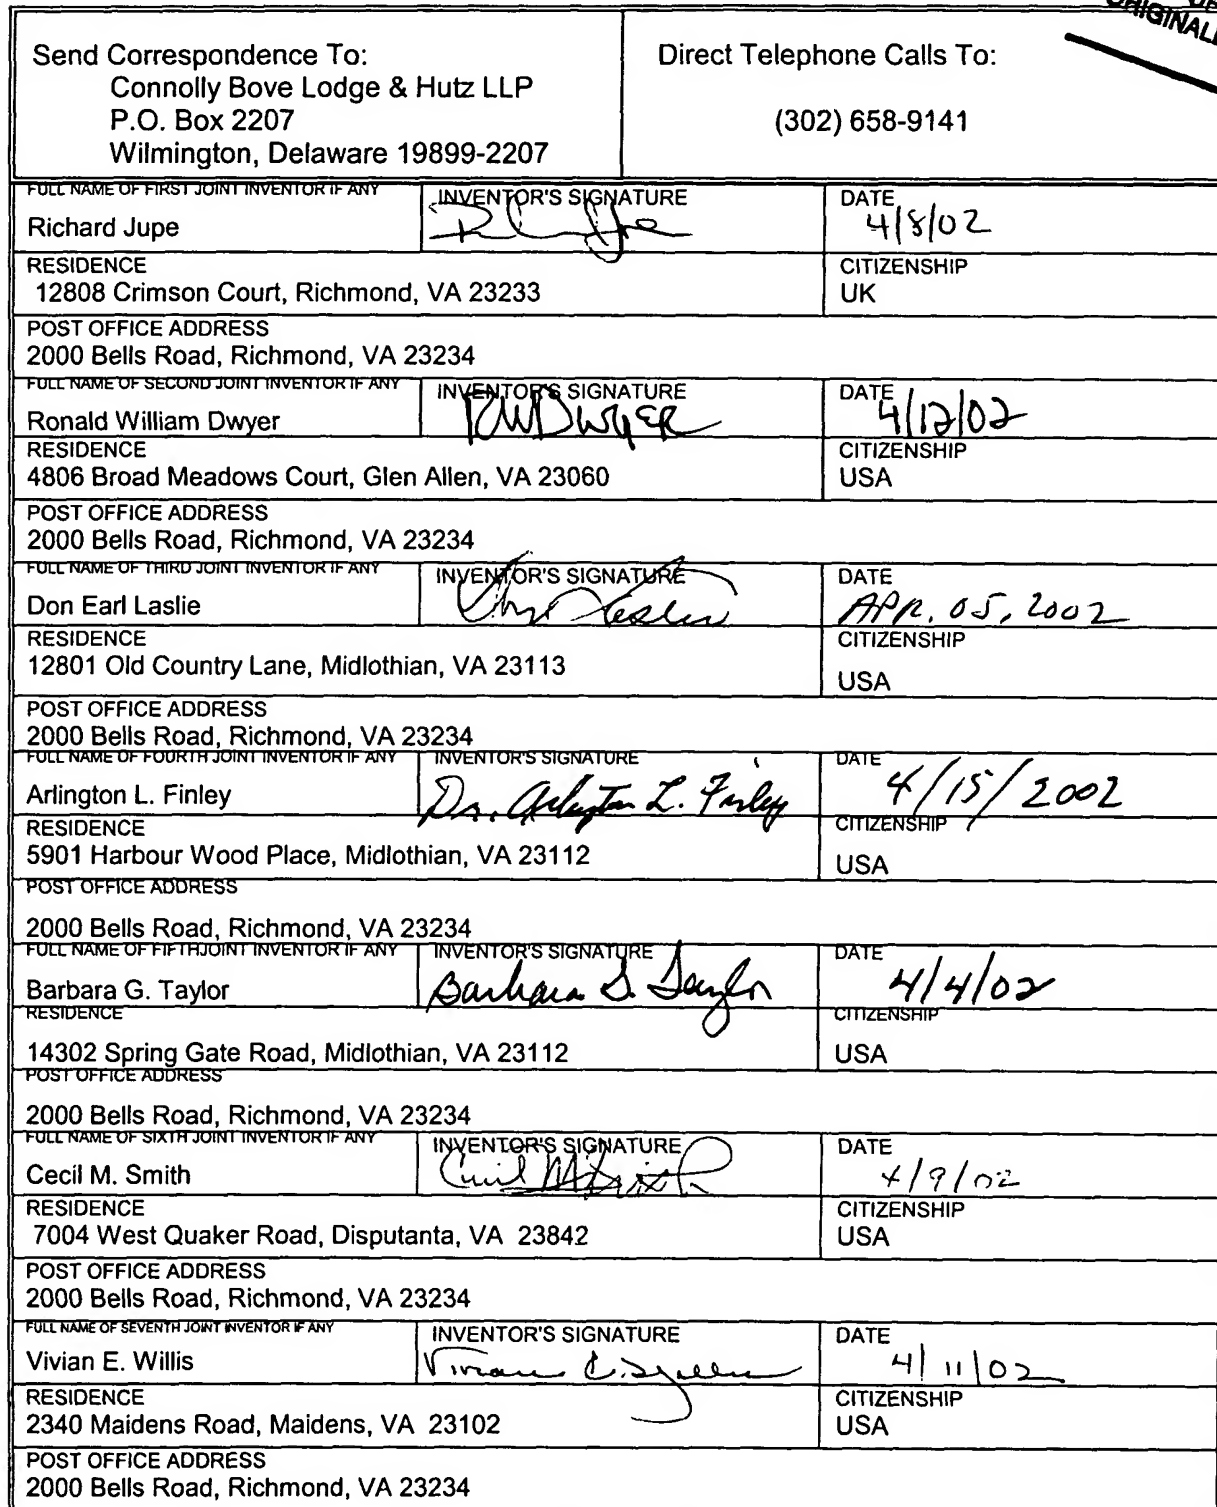 ORIGINALL
Send Correspondence To:
Connolly Bove Lodge & Hutz LLP
P.O. Box 2207
Wilmington, Delaware 19899-2207
Direct Telephone Calls To:
(302) 658-9141
FULL NAME OF FIRST JOINT INVENTOR IF ANY
Richard Jupe
INVENTOR'S SIGNATURE
DATE
4/8/02
RESIDENCE
12808 Crimson Court, Richmond, VA 23233
CITIZENSHIP
UK
POST OFFICE ADDRESS
2000 Bells Road, Richmond, VA 23234
FULL NAME OF SECOND JOINT INVENTOR IF ANY
Ronald William Dwyer
INVENTOR'S SIGNATURE
RWDwyer
DATE
4/12/02
RESIDENCE
4806 Broad Meadows Court, Glen Allen, VA 23060
CITIZENSHIP
USA
POST OFFICE ADDRESS
2000 Bells Road, Richmond, VA 23234
FULL NAME OF THIRD JOINT INVENTOR IF ANY
Don Earl Laslie
INVENTOR'S SIGNATURE
DATE
APR. 05, 2002
RESIDENCE
12801 Old Country Lane, Midlothian, VA 23113
CITIZENSHIP
USA
POST OFFICE ADDRESS
2000 Bells Road, Richmond, VA 23234
FULL NAME OF FOURTH JOINT INVENTOR IF ANY
Arlington L. Finley
INVENTOR'S SIGNATURE
Dr. Arlington L. Finley
DATE
4/15/2002
RESIDENCE
5901 Harbour Wood Place, Midlothian, VA 23112
CITIZENSHIP
USA
POST OFFICE ADDRESS
2000 Bells Road, Richmond, VA 23234
FULL NAME OF FIFTHJOINT INVENTOR IF ANY
Barbara G. Taylor
INVENTOR'S SIGNATURE
Barbara G. Taylor
DATE
4/4/02
RESIDENCE
14302 Spring Gate Road, Midlothian, VA 23112
CITIZENSHIP
USA
POST OFFICE ADDRESS
2000 Bells Road, Richmond, VA 23234
FULL NAME OF SIXTH JOINT INVENTOR IF ANY
Cecil M. Smith
INVENTOR'S SIGNATURE
Cecil M Smith
DATE
4/9/02
RESIDENCE
7004 West Quaker Road, Disputanta, VA 23842
CITIZENSHIP
USA
POST OFFICE ADDRESS
2000 Bells Road, Richmond, VA 23234
FULL NAME OF SEVENTH JOINT INVENTOR IF ANY
Vivian E. Willis
INVENTOR'S SIGNATURE
Vivian E. Willis
DATE
4/11/02
RESIDENCE
2340 Maidens Road, Maidens, VA 23102
CITIZENSHIP
USA
POST OFFICE ADDRESS
2000 Bells Road, Richmond, VA 23234